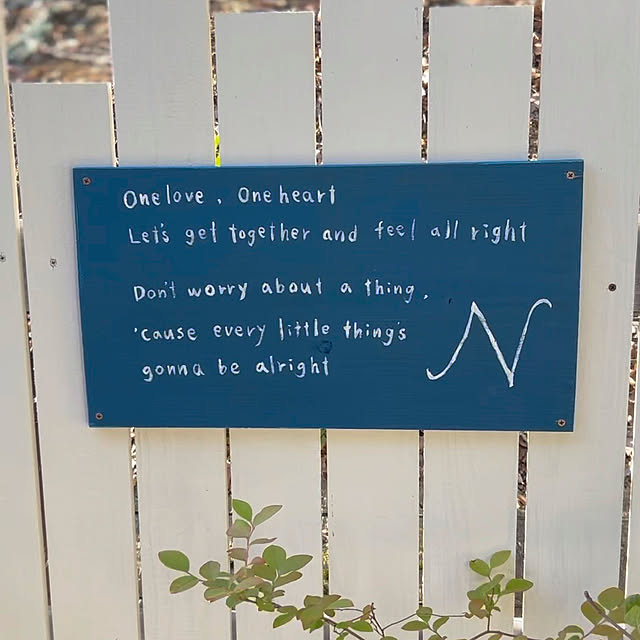 One love, One heart
Let's get together and feel all right
Don't worry about a thing,
'cause every little thing's
gonna be alright
N